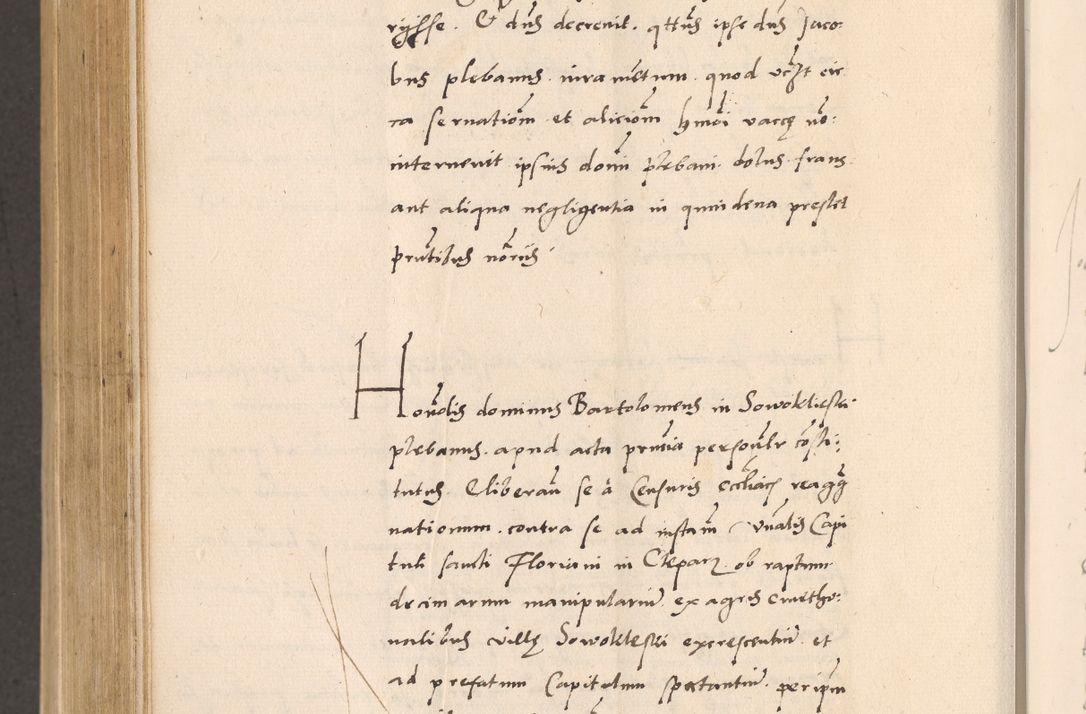 rijsse. Et dns decrevit. qttus ipse dns Jaco
bus plebanus. iuramentum. quod circ
ca servationem et alicionem hmoi vaccę no:
intervenit ipsius domi plebani dolus. fraus
aut aliqua negligentia in quindena prestet
pntibus noriis
Honolis dominus Bartolomeus in Sowoklieski
plebanus. apud acta pntia personalr consti:
tutus. Cliberan se a Censuris ecclliacis reagg
nationum. contra se ad instam Vnalis Capi
tuli sancti Floriani in Clepar. ob raptum
decimarum manipularium. ex agris cmetho:
nalibus villę Sowokleski excrescentium. et
ad prefatum Capitulum spectantium. per ipm